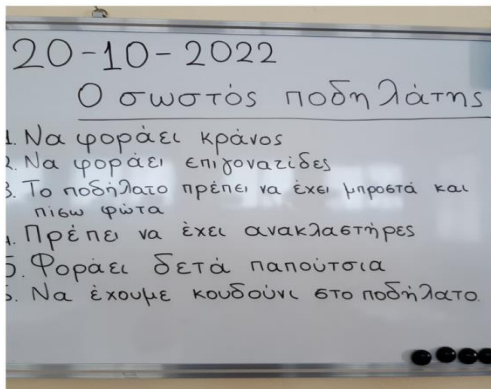 20-10-2022
Ο σωστός ποδηλάτης
1. Να φοράει κράνος
2. Να φοράει επιγονατίδες
3. Το ποδήλατο πρέπει να έχει μπροστά και
πίσω φώτα
4. Πρέπει να έχει ανακλαστήρες
5. Φοράει δετά παπούτσια
6. Να έχουμε κουδούνι στο ποδήλατο.